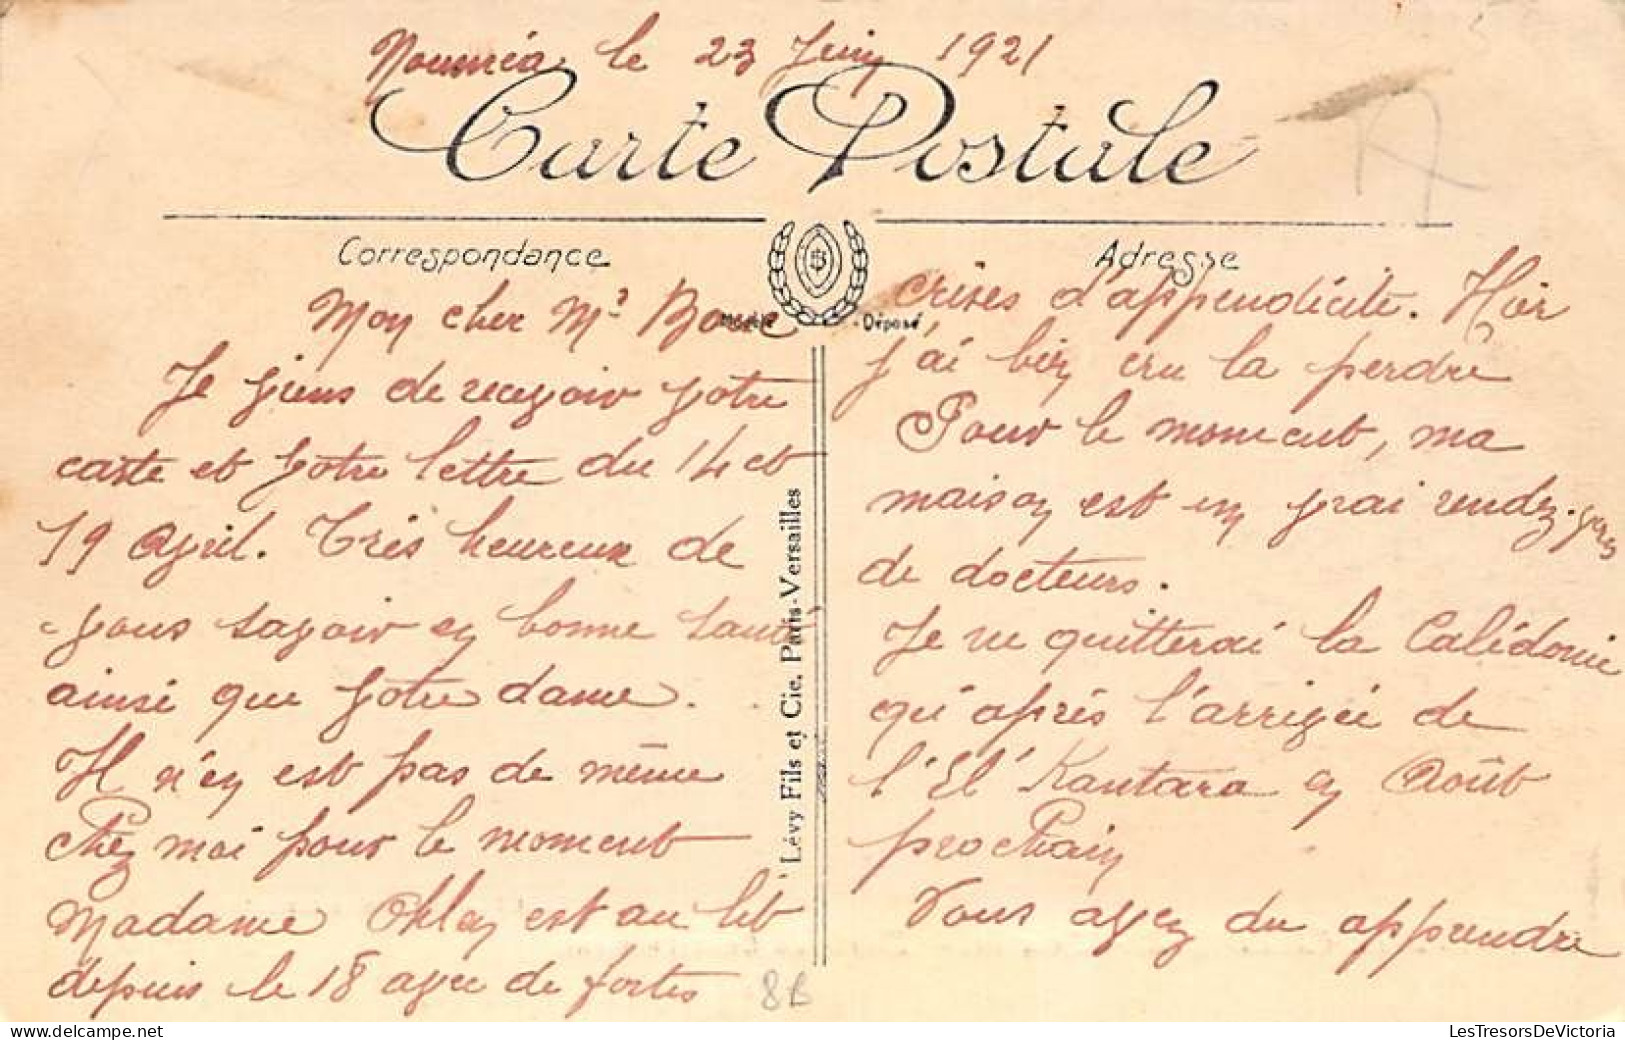 Nouméa le 23 Juin 1921
Carte Postale
Correspondance
Adresse
Modèle Déposé
Mon cher Mr
Je viens de recevoir votre
carte et votre lettre du 14 et
19 Avril. Très heureux de
vous savoir en bonne santé
ainsi que votre dame.
Il n'en est pas de même
chez moi pour le moment
Madame Ohlen est au lit
depuis le 18 avec de fortes
8B
Lévy Fils et Cie. Paris-Versailles
crises d'appendicite. Hier
j'ai bien cru la perdre
Pour le moment, ma
maison est en vrai rendez-vous
de docteurs.
Je ne quitterai la Calédonie
qu'après l'arrivée de
l'El Kantara en Août
prochain
Vous avez du apprendre
LesTresorsDeVictoria